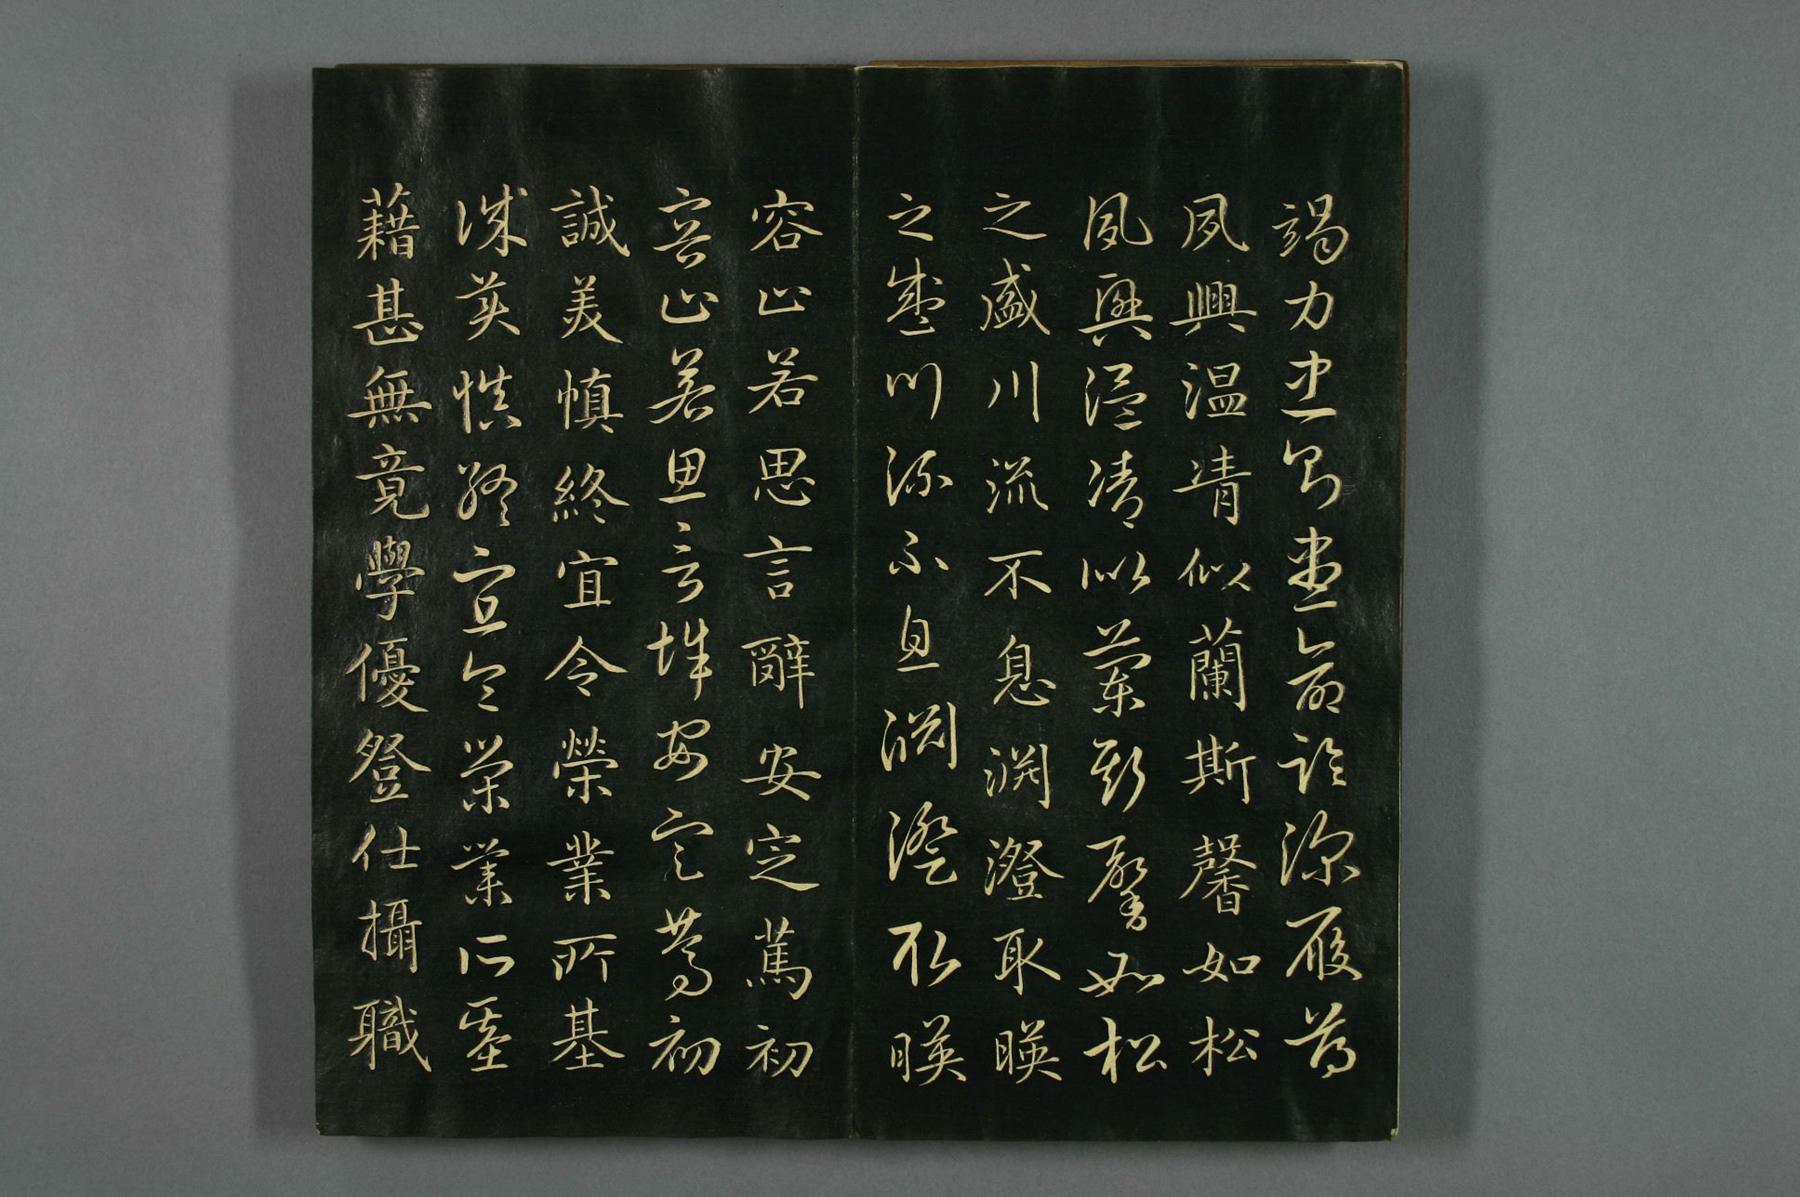 竭力忠則盡命臨深履薄
夙興温凊似蘭斯馨如松
夙興温凊似蘭斯馨如松
之盛川流不息渊澄取暎
之盛川流不息渊澄取暎
容止若思言辭安定篤初
容止若思言辭安定篤初
誠美慎終宜令榮業所基
誠美慎終宜令榮業所基
藉甚無竟學優登仕攝職